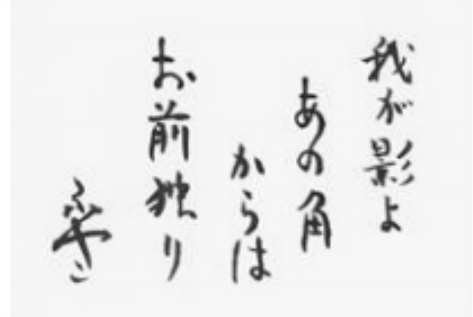 我が影よ
あの角
からは
お前独り
ふやこ